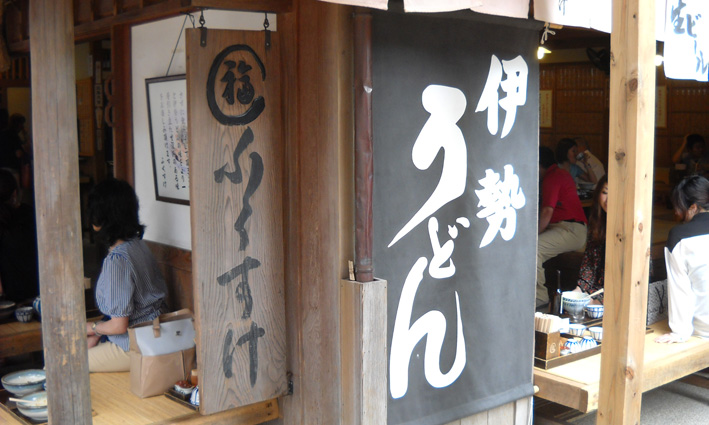 伊勢
うどん
福
ふくすけ
生ビール